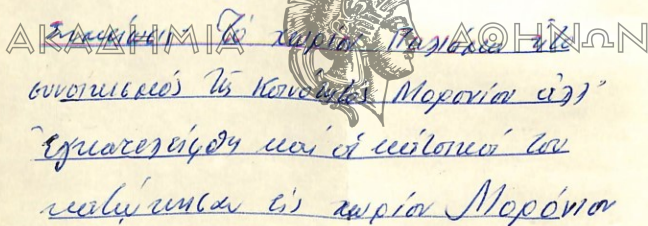 ΑΚΑΔΗΜΙΑ ΑΘΗΝΩΝ
Σημείωσις Τό χωρίον ἦτο
συνοικισμός τῆς Κοινότητος Μορονίου ἀλλ'
ἐγκατελείφθη καί οἱ κάτοικοί του
κατώκησαν εἰς χωρίον Μορόνιον